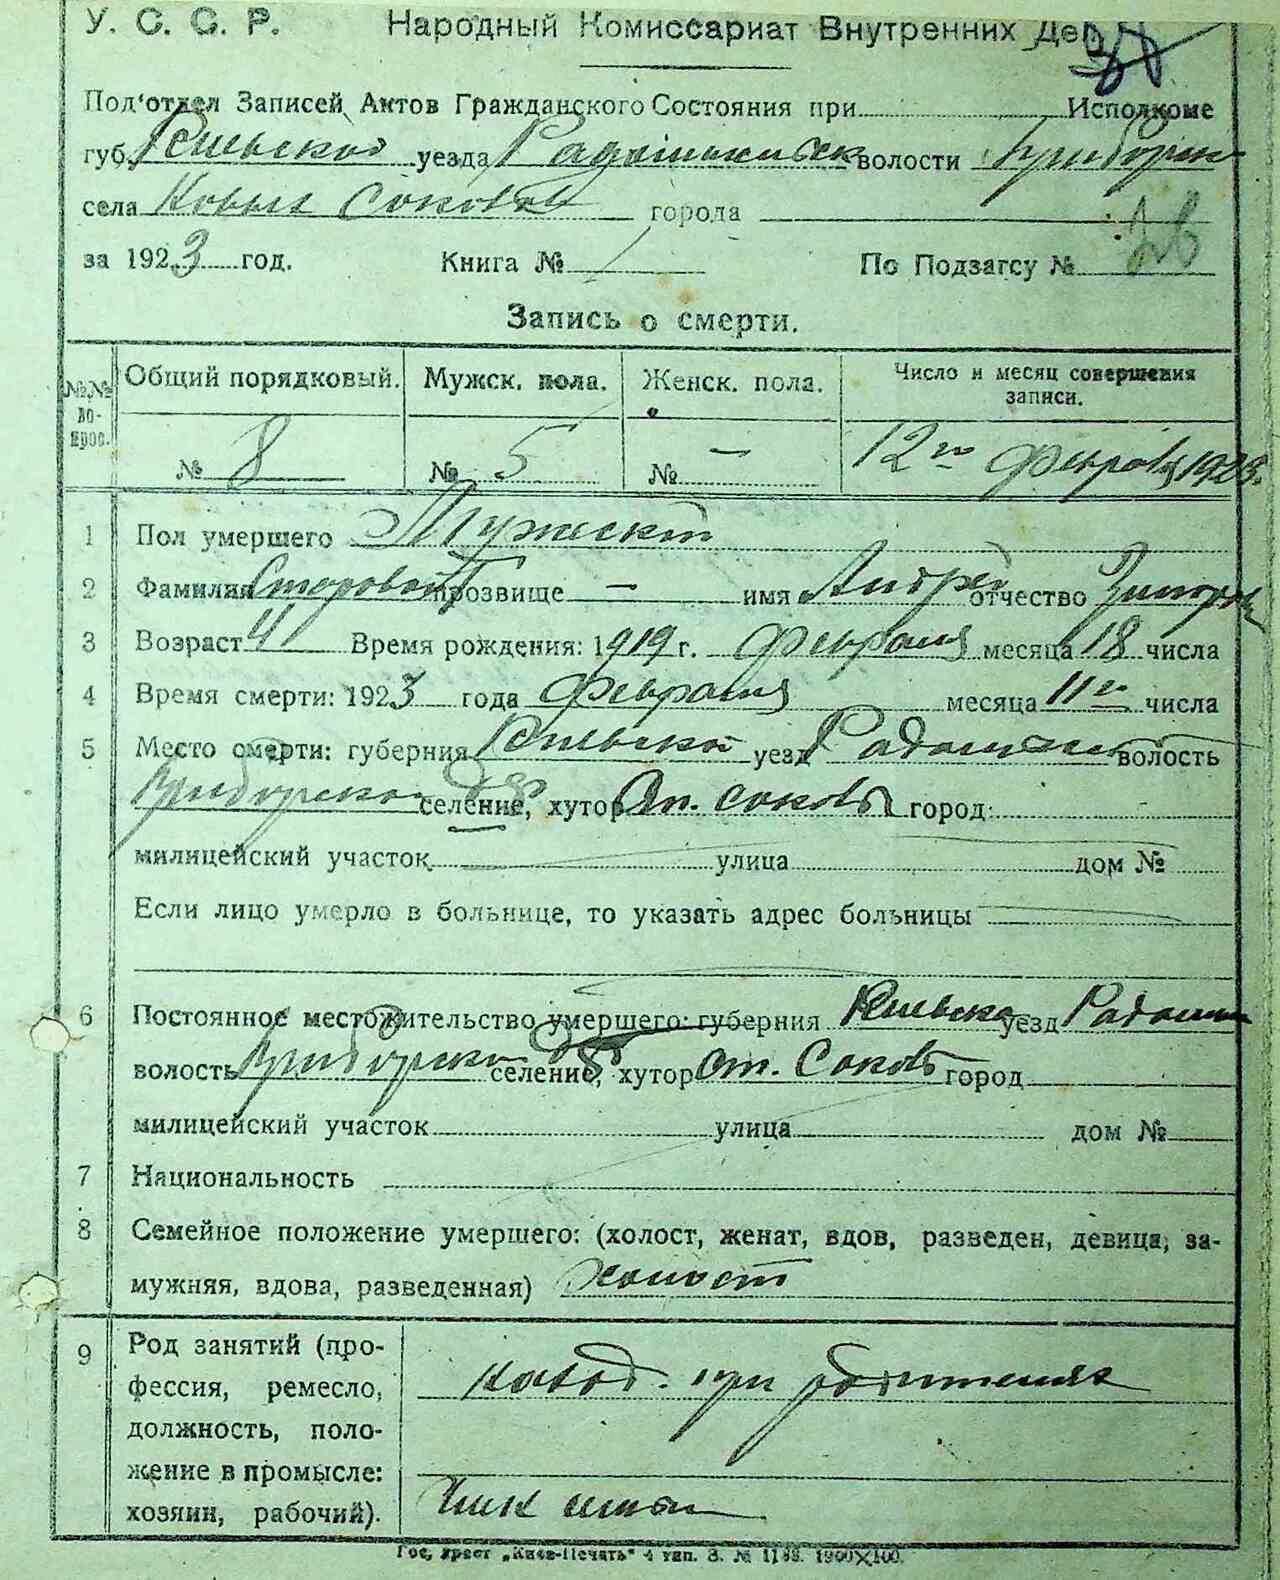 У. С. С. Р. Народный Комиссариат Внутренних Дел
Под'отдел Записей Актов Гражданского Состояния при Исполкоме
губ. Киевской уезда Радомысльск волости Приборск
села Новых Соколов города
за 1923 год. Книга № 1 По Подзагсу №
Запись о смерти.
№№ вопрос. Общий порядковый. Мужск. пола. Женск. пола. Число и месяц совершения записи.
№ 8 № 5 № — 12го Февраля 1923.
1 Пол умершего Мужеский
2 Фамилия Старовойт прозвище — имя Андрей отчество
3 Возраст 4 Время рождения: 1919 г. Февраля месяца 18 числа
4 Время смерти: 1923 года Февраля месяца 11го числа
5 Место смерти: губерния Киевской уезд волость
Приборской селение, хутор город:
милицейский участок улица дом №
Если лицо умерло в больнице, то указать адрес больницы
6 Постоянное местожительство умершего: губерния Киевска уезд Радомы
волость Приборско селение, хутор ст. Соколы город
милицейский участок улица дом №
7 Национальность
8 Семейное положение умершего: (холост, женат, вдов, разведен, девица, за-
мужняя, вдова, разведенная) холост
9 Род занятий (про-
фессия, ремесло,
должность, поло-
жение в промысле:
хозяин, рабочий).
наход. при родителях
Гос, трест „Киев-Печать" 4 тип. З. № 1188. 1900×100.